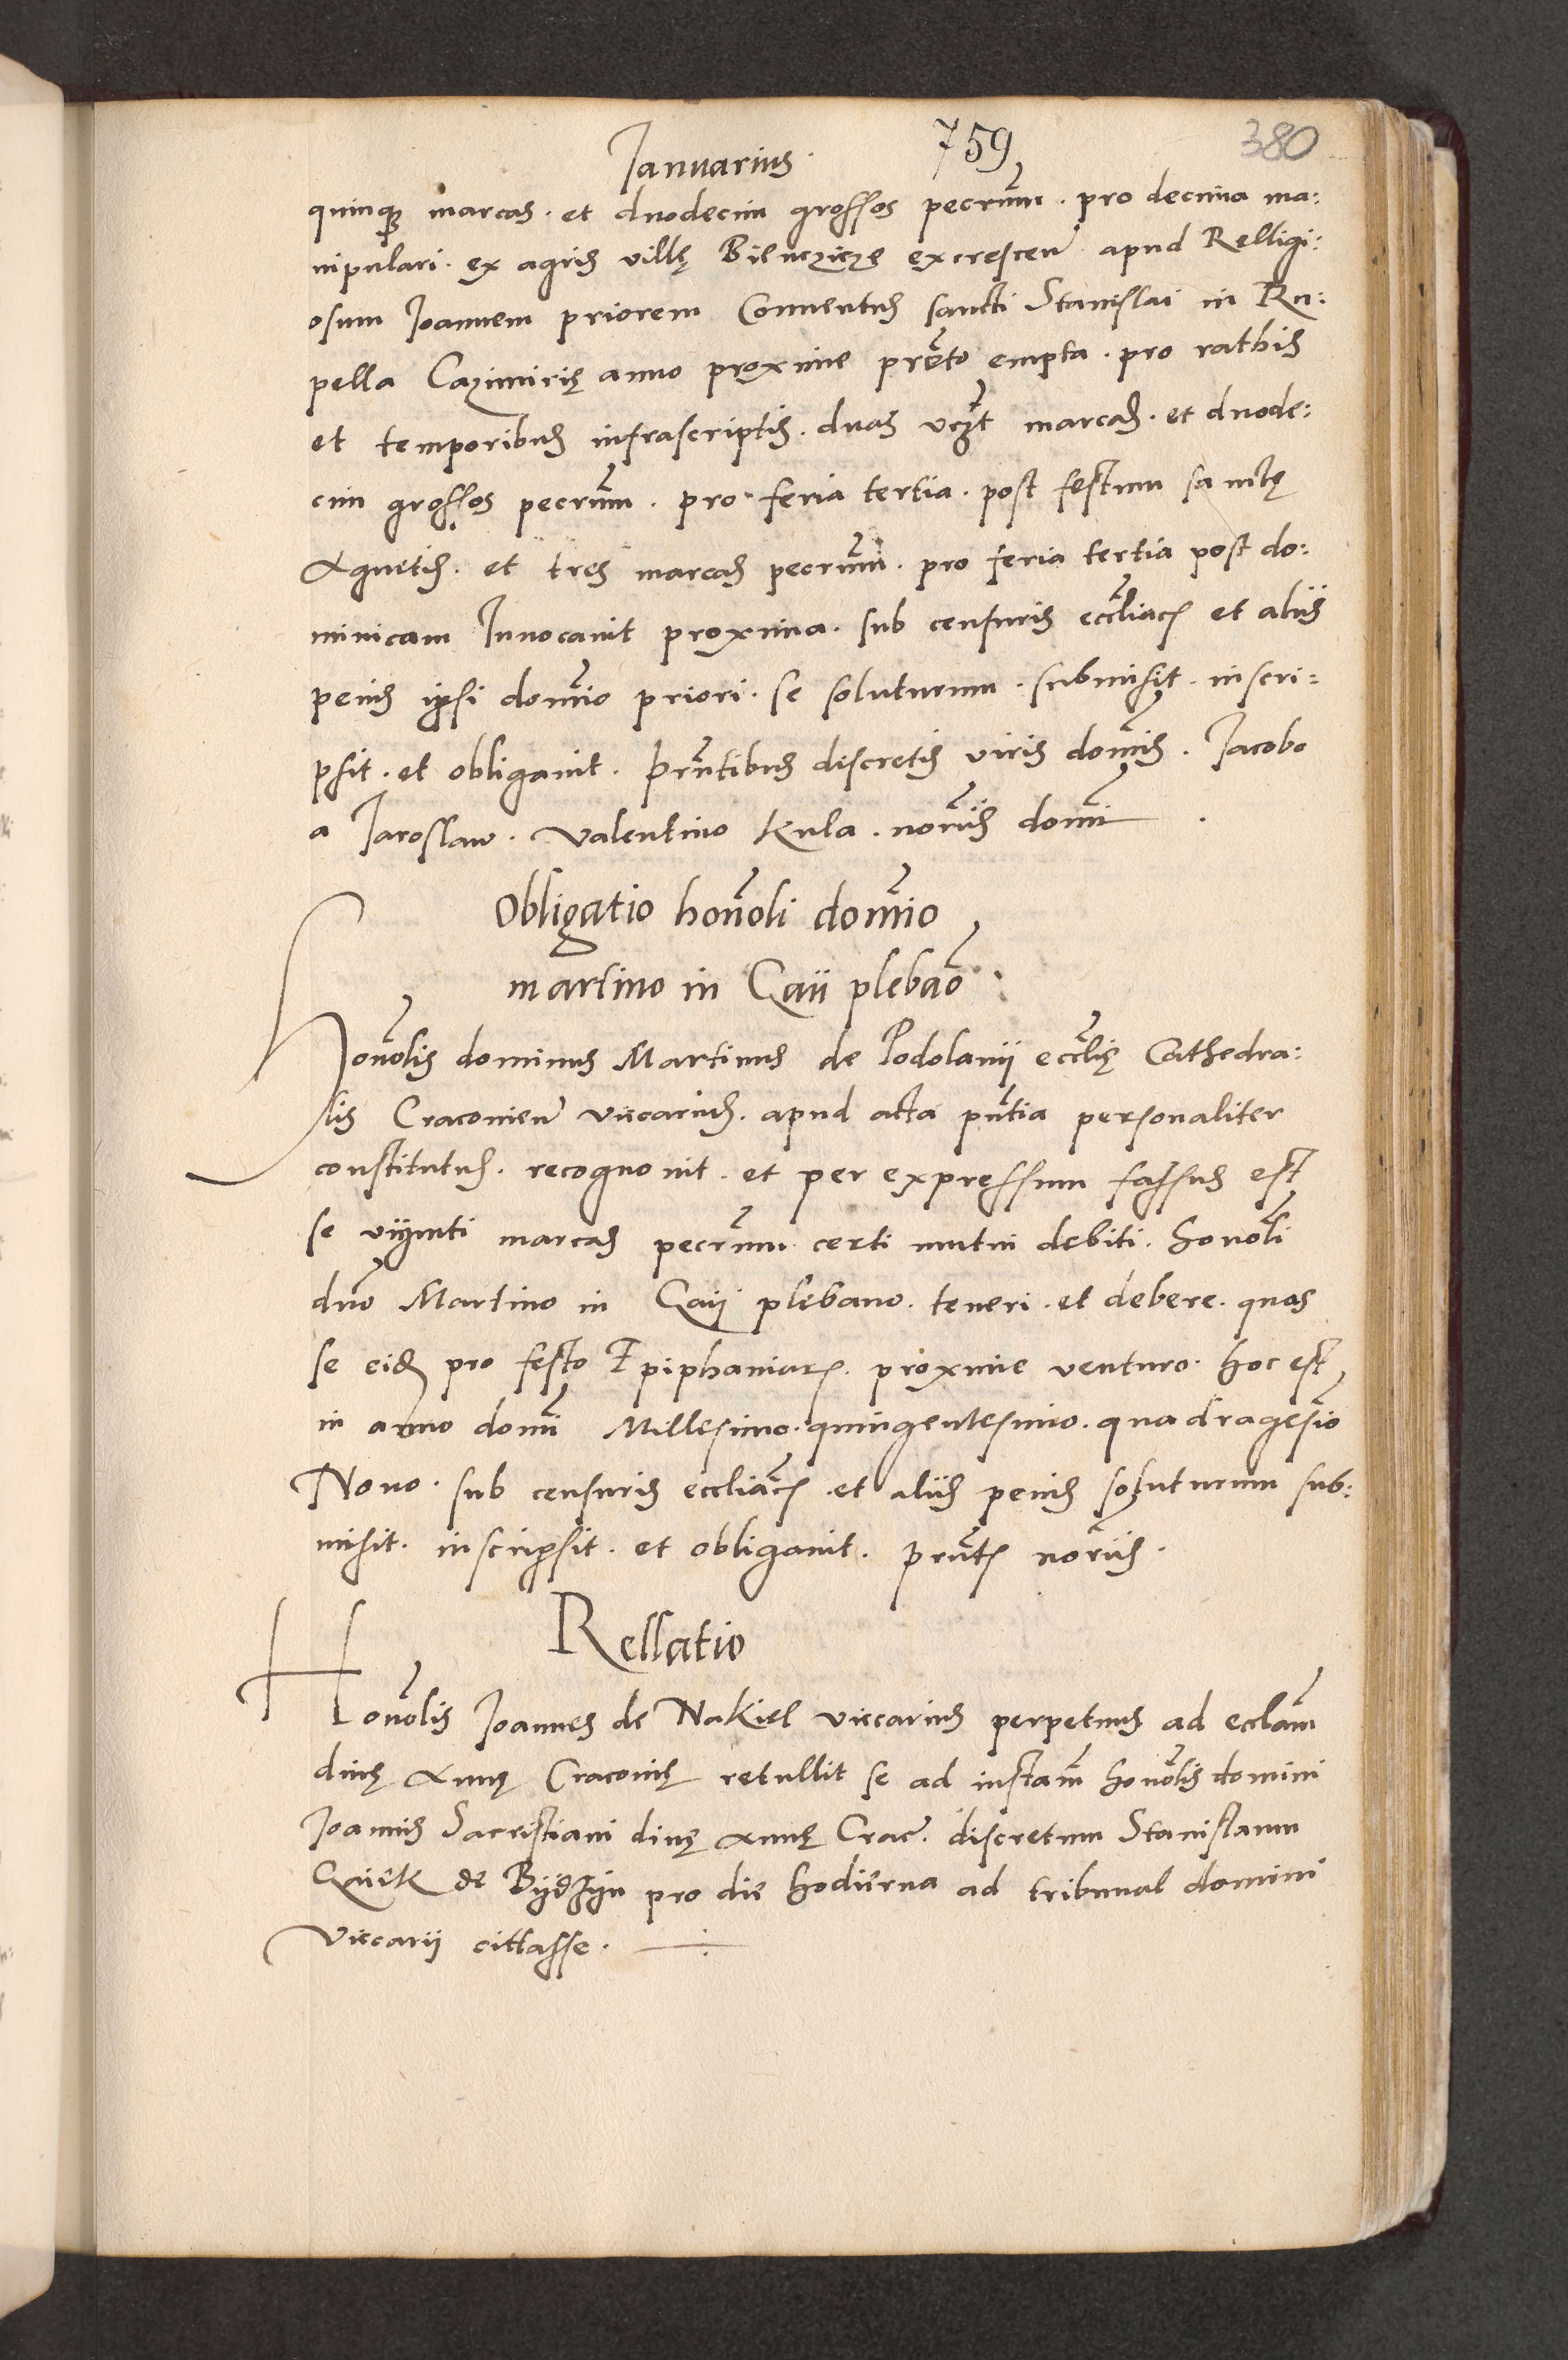 Ianuarius. 759 380
quinque marcas. et duodecim grossos pecuniarum. pro decima ma:
nipulari. ex agris villę Bienczicze excrescen apud Relligi:
osum Joannem priorem Conuentus sancti Stanislai in Ru:
pella Cazimirię anno proxime preterito empta. pro rathis
et temporibus infrascriptis. duas videlicet marcas. et duode:
cim grossos pecuniarum. pro feria tertia. post festum sanctę
Agnetis. et tres marcas pecuniarum. pro feria tertia post do:
minicam Inuocauit proxima. sub censuris eccliacis et aliis
penis ipsi domino priori. se soluturum. submisit. inscri:
psit. et obligauit. prntibus discretis viris dominis. Jacobo
a Jaroslaw. Valentino Kula. notariis domini.
Obligatio honoli domino
martino in Gaii plebano.
Honolis dominus Martinus de Podolanij ecclię Cathedra:
lis Cracouien viccarius. apud acta pntia personaliter
constitutus. recognouit. et per expressum fassus est
se viginti marcas pecuniarum certi mutui debiti. honoli
dno Martino in Gaij plebano. teneri. et debere. quas
se eidem pro festo Epiphaniarum. proxime venturo. hoc est
in anno domini Millesimo. quingentesimo. quadragesimo
Nono. sub censuris eccliacis. et aliis penis soluturum sub:
misit. inscripsit. et obligauit. prntibus notariis.
Rellatio
Honolis Joannes de Nakiel viccarius perpetuus ad ecclam
diuę Annę Cracouię retullit se ad instam honolis domini
Joannis Sacristiani diuę Annę Crac. discretum Stanislaum
de pro die hodierna ad tribunal domini
Viccarij cittasse.